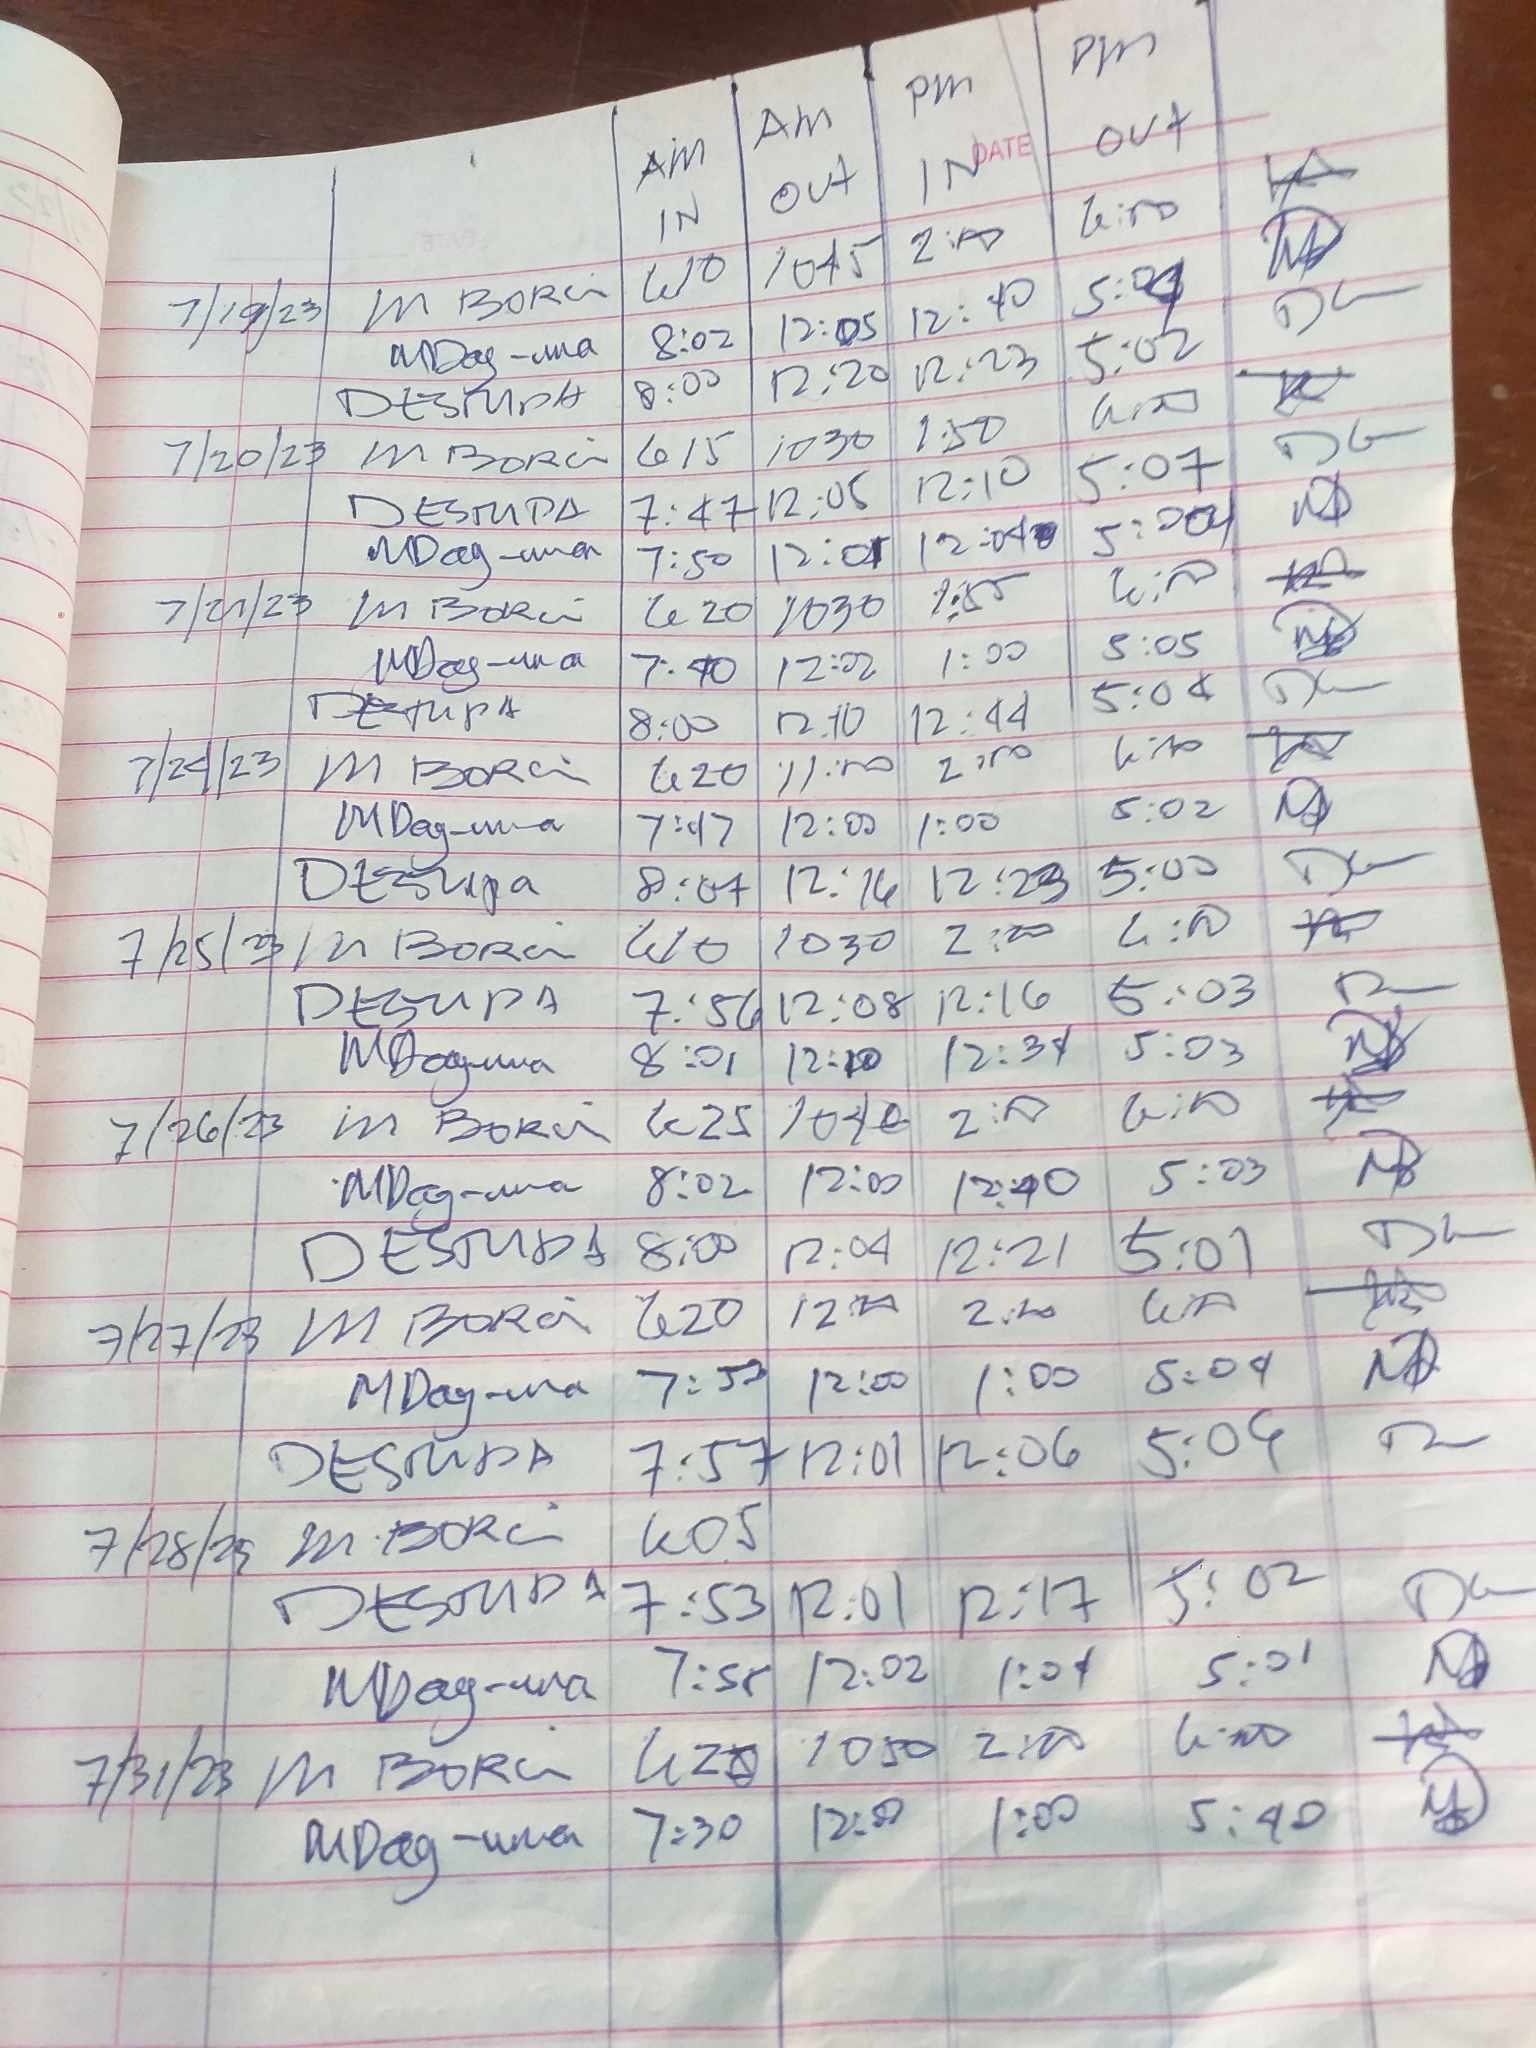 AM IN AM OUT PM IN PM OUT
DATE
7/19/23 M BORCi 610 1045 2:00 6:00
MDag-uma 8:02 12:05 12:40 5:04
DESTUPA 8:00 12:20 12:23 5:02
7/20/23 M BORCi 615 1030 1:50 6:00
DESTUPA 7:47 12:05 12:10 5:07
MDag-uma 7:50 12:01 12:04 5:04
7/21/23 M BORCi 620 1030 1:55 6:00
MDag-uma 7:40 12:02 1:00 5:05
DESTUPA 8:00 12:10 12:44 5:04
7/24/23 M BORCi 620 11:00 2:00 6:00
MDag-uma 7:47 12:00 1:00 5:02
DESTUPa 8:07 12:16 12:23 5:00
7/25/23 M BORCi 610 1030 2:00 6:00
DESTUPA 7:56 12:08 12:16 5:03
MDag-uma 8:01 12:10 12:34 5:03
7/26/23 M BORCi 625 2:00 6:00
MDag-uma 8:02 12:00 12:40 5:03
DESTUPA 8:00 12:04 12:21 5:01
7/27/23 M BORCi 620 12:00 2:00 6:00
MDag-uma 7:53 12:00 1:00 5:04
DESTUPA 7:57 12:01 12:06 5:04
7/28/23 M BORCi 605
DESTUPA 7:53 12:01 12:17 5:02
MDag-uma 7:55 12:02 1:01 5:01
7/31/23 M BORCi 620 1050 2:00 6:00
MDag-uma 7:30 12:00 1:00 5:40